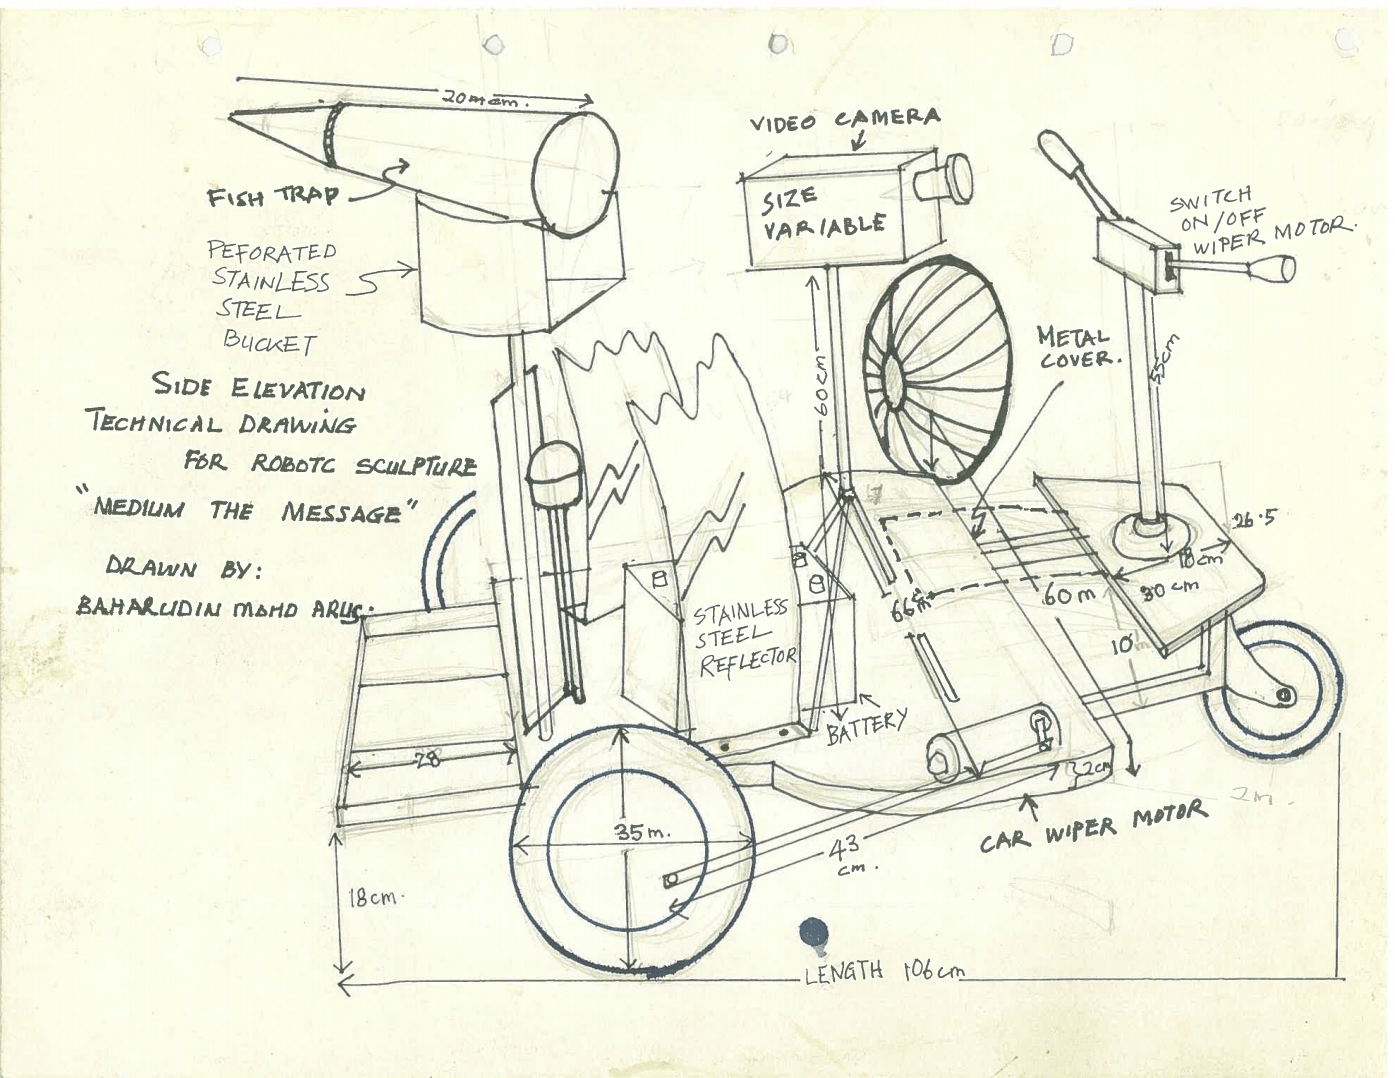 20mcm.
FISH TRAP
PEFORATED
STAINLESS
STEEL
BUCKET
SIDE ELEVATION
TECHNICAL DRAWING
FOR ROBOTC SCULPTURE
"MEDIUM THE MESSAGE"
DRAWN BY:
VIDEO CAMERA
SIZE
VARIABLE
SWITCH
ON/OFF
WIPER MOTOR.
METAL
COVER.
60cm
55cm
26.5
18cm
30 cm
60 m
66m
10
STAINLESS
STEEL
REFLECTOR
BATTERY
32cm
2m.
CAR WIPER MOTOR
28
35m.
43
cm.
18cm.
LENGTH 106cm